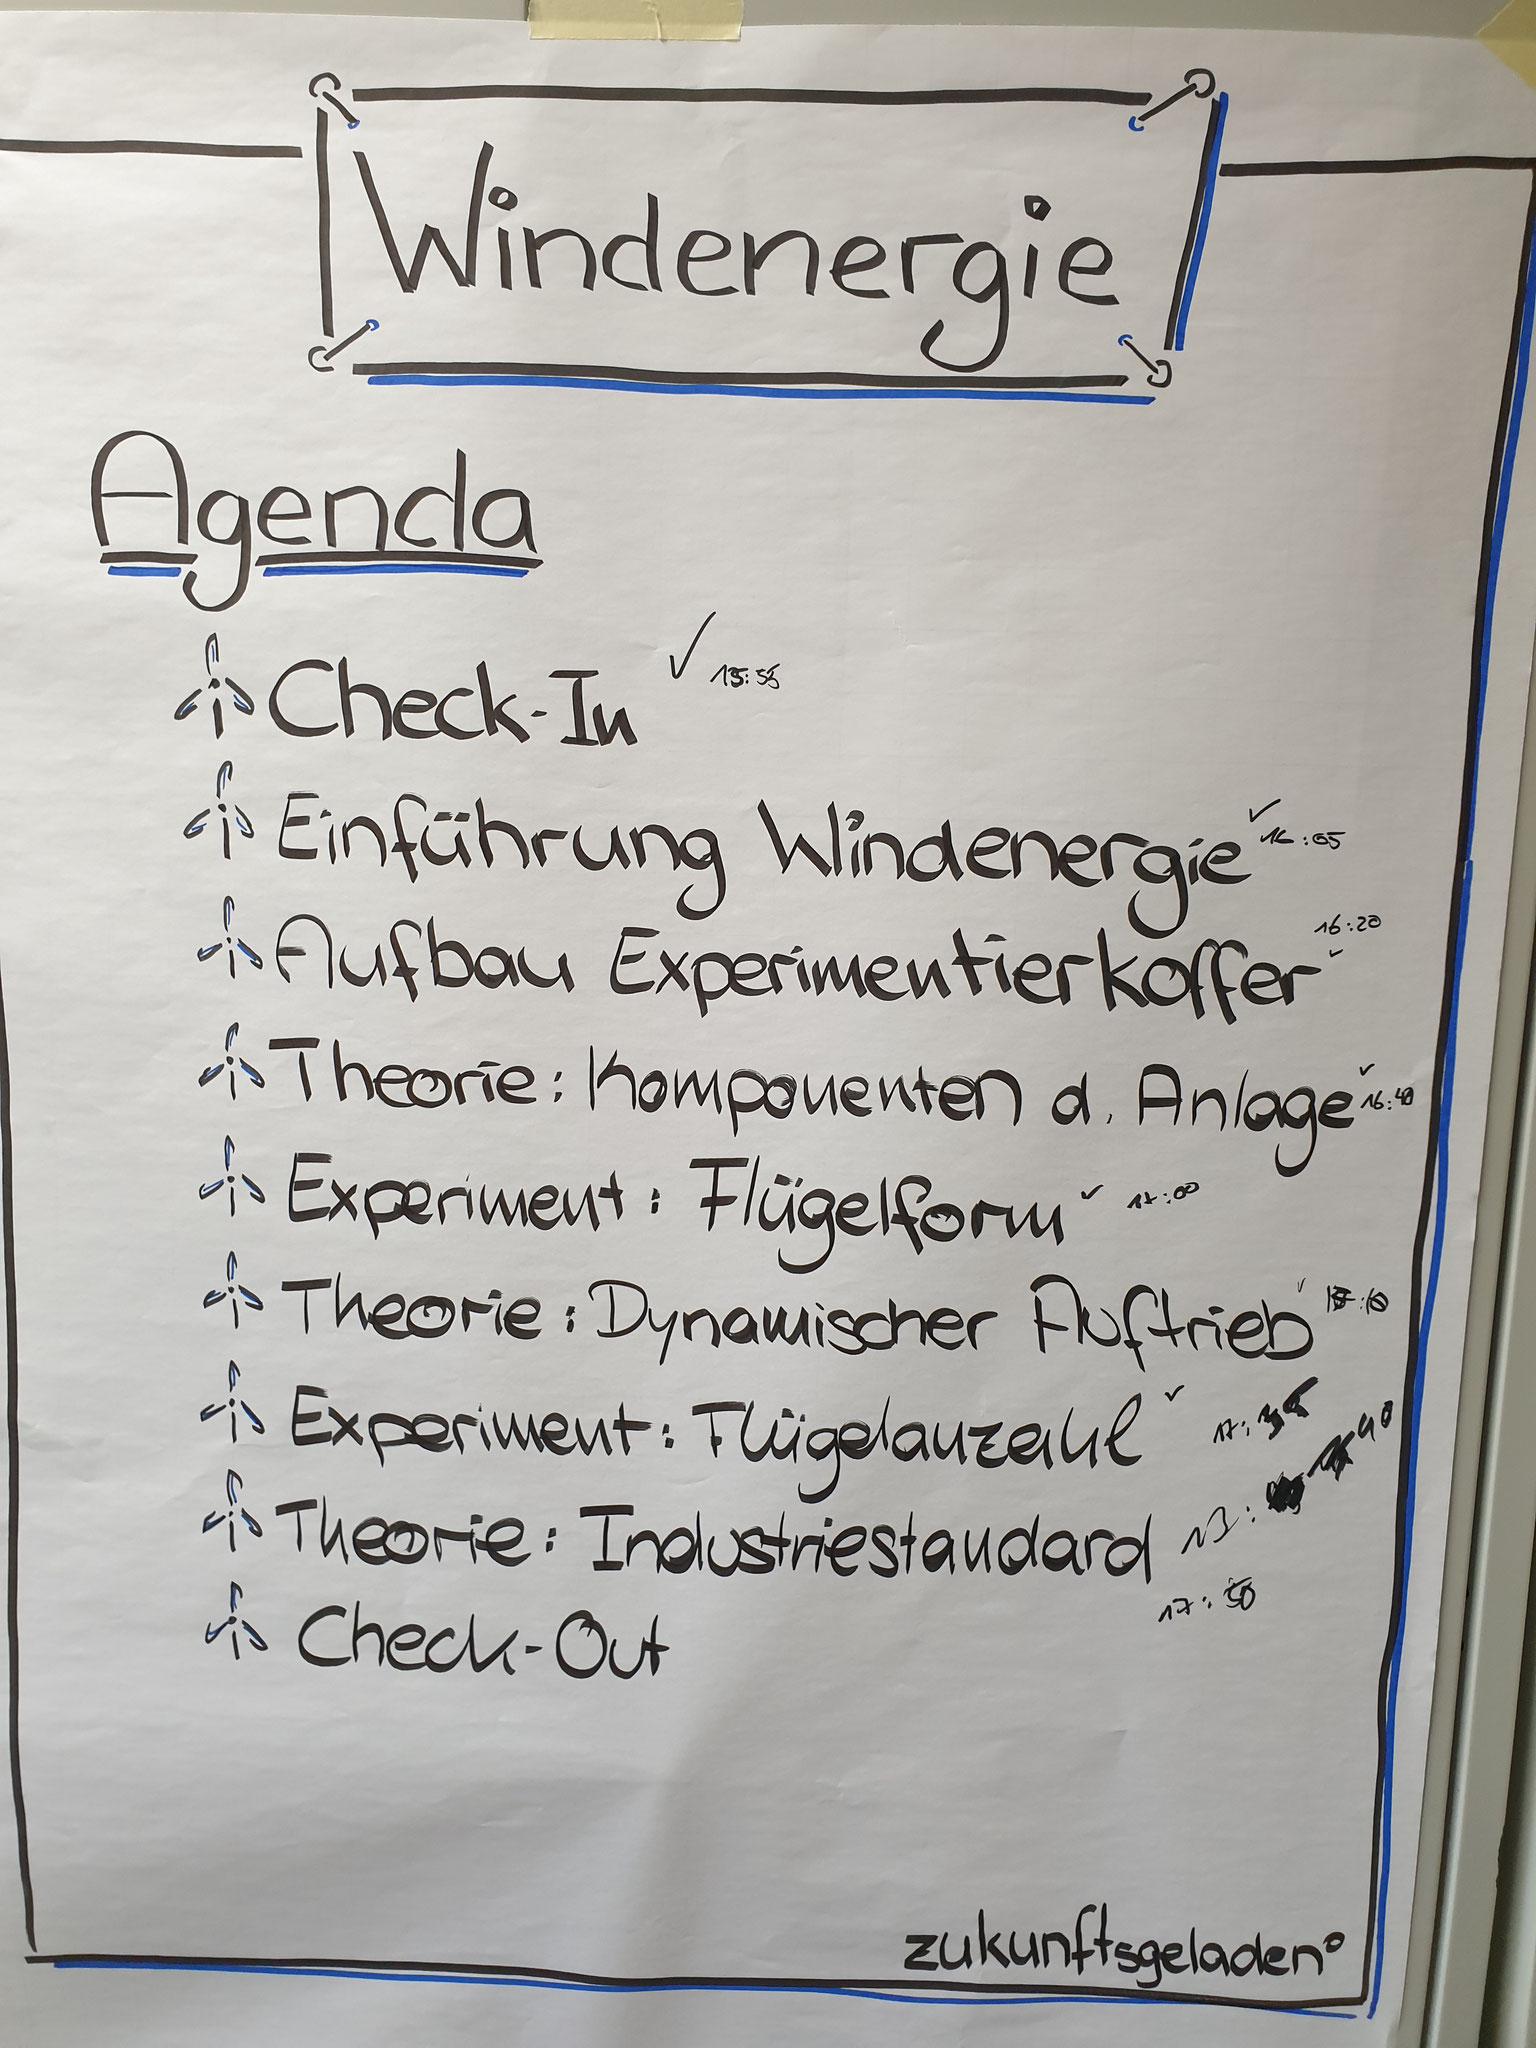 Windenergie
Agenda
Check-In ✓ 15:55
Einführung Windenergie ✓ 16:05
Aufbau Experimentierkoffer ✓ 16:20
Theorie: Komponenten d. Anlage ✓ 16:40
Experiment: Flügelform ✓ 17:00
Theorie: Dynamischer Auftrieb ✓
Experiment: Flügelanzahl ✓
Theorie: Industriestandard
Check-Out 17:50
zukunftsgeladen°